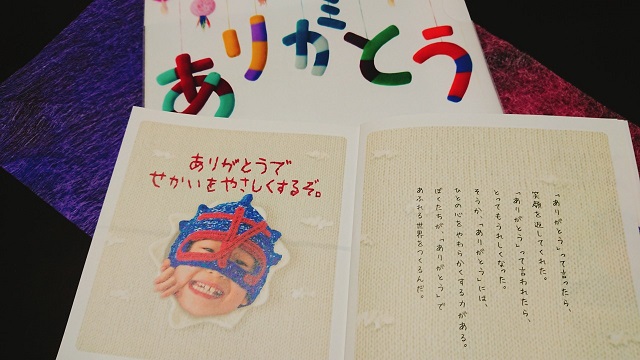 ありがとう
ありがとうで
せかいをやさしくするぞ。
あ
「ありがとう」って言ったら、
笑顔を返してくれた。
「ありがとう」って言われたら、
とってもうれしくなった。
そうか、「ありがとう」には、
ひとの心をやわらかくする力がある。
ぼくたちが、「ありがとう」で
あふれる世界をつくるんだ。